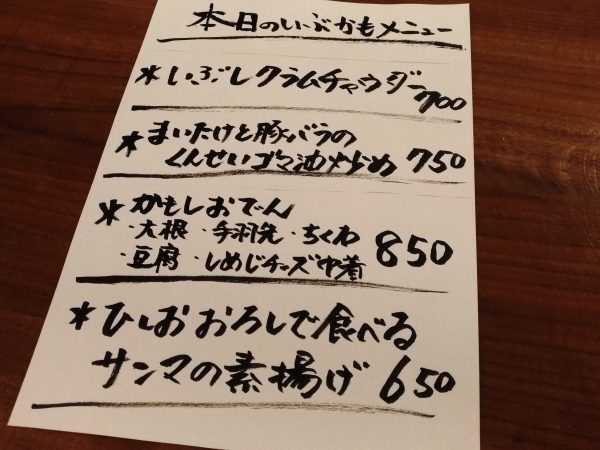 本日のいぶかもメニュー
＊いぶしクラムチャウダー 700
＊まいたけと豚バラの
くんせいゴマ油炒め 750
＊かもしおでん
・大根・手羽先・ちくわ
・豆腐・しめじチーズ巾着 850
＊ひしおおろしで食べる
サンマの素揚げ 650